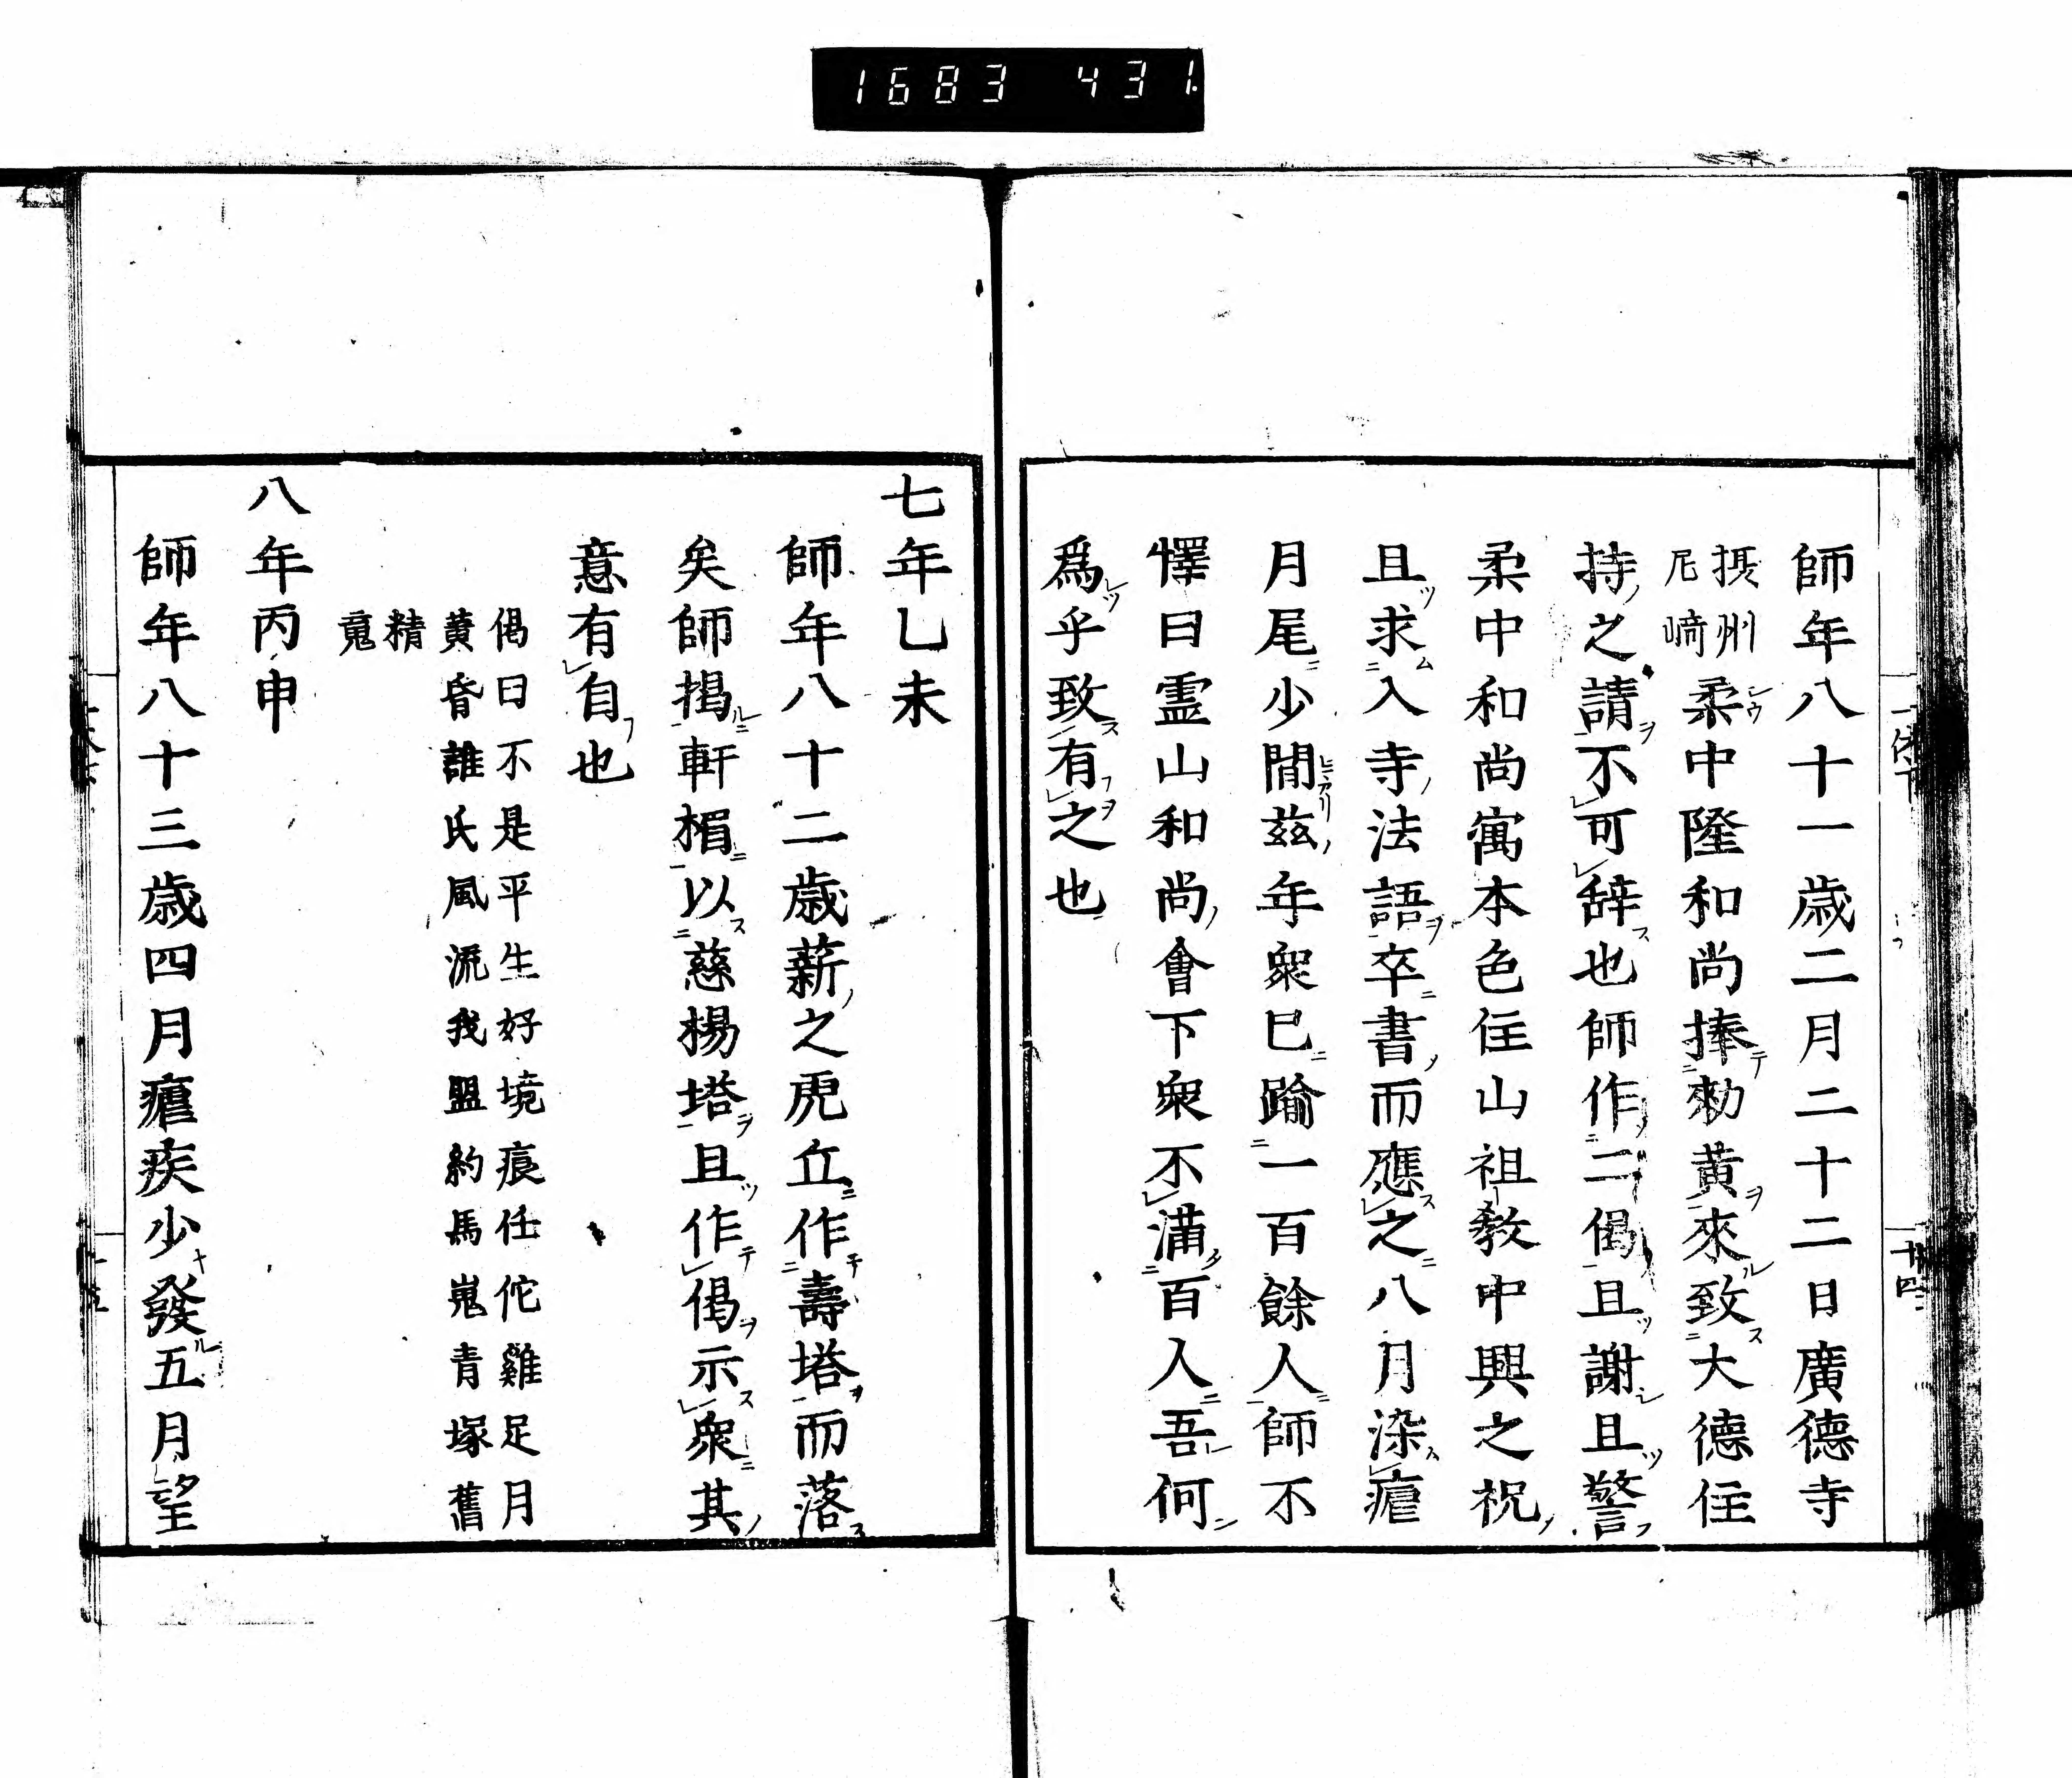 1683 431.
師年八十一歳二月二十二日廣德寺
摂州
尼﨑
柔中隆和尚捧勅黄來致大德住
持之請不可辞也師作二偈且謝且警
柔中和尚寓本色住山祖教中興之祝
且求入寺法語卒書而應之八月染瘧
月尾少間茲年衆巳踰一百餘人師不
懌曰霊山和尚會下衆不滿百人吾何
爲乎致有之也
七年乙未
師年八十二歳薪之虎丘作壽塔而落
矣師掲軒楣以慈楊塔且作偈示衆其
意有自也
偈曰不是平生好境痕任佗雞足月
黄昏誰氏風流我盟約馬嵬青塚舊
精
䰟
八年丙申
師年八十三歳四月瘧疾少發五月望